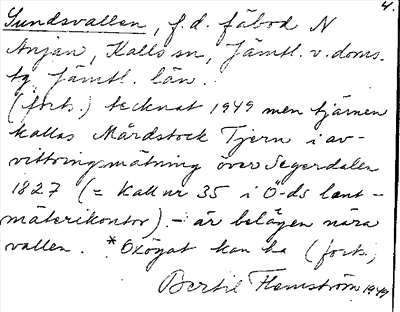 4.
Sundsvallen, f.d. fäbod N
Anjan, Kalls sn, Jämtl. v. doms.
tg. Jämtl. län.
(forts.) tecknat 1949 men tjärnen
kallas Mårdstock Tjern i av-
vittringsmätning över Segerdalen
1827 (= Kall nr 35 i Ö-ds lant-
mäterikontor). - är belägen nära
vallen. *Oxögat kan ha (forts.)
Bertil Flemström 1949